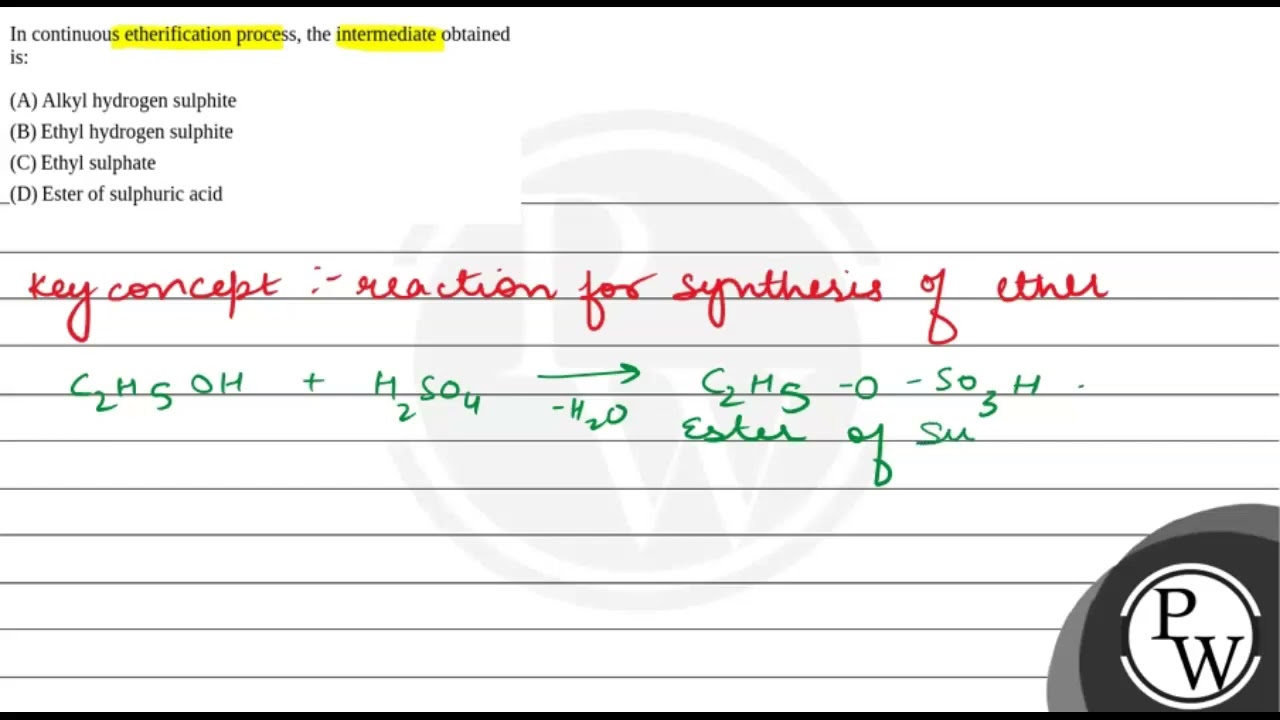 In continuous etherification process, the intermediate obtained
is:
(A) Alkyl hydrogen sulphite
(B) Ethyl hydrogen sulphite
(C) Ethyl sulphate
(D) Ester of sulphuric acid
Key concept :- reaction for synthesis of ether
C₂H₅OH + H₂SO₄ → C₂H₅-O-SO₃H
-H₂O
Ester of Su
PW
PW